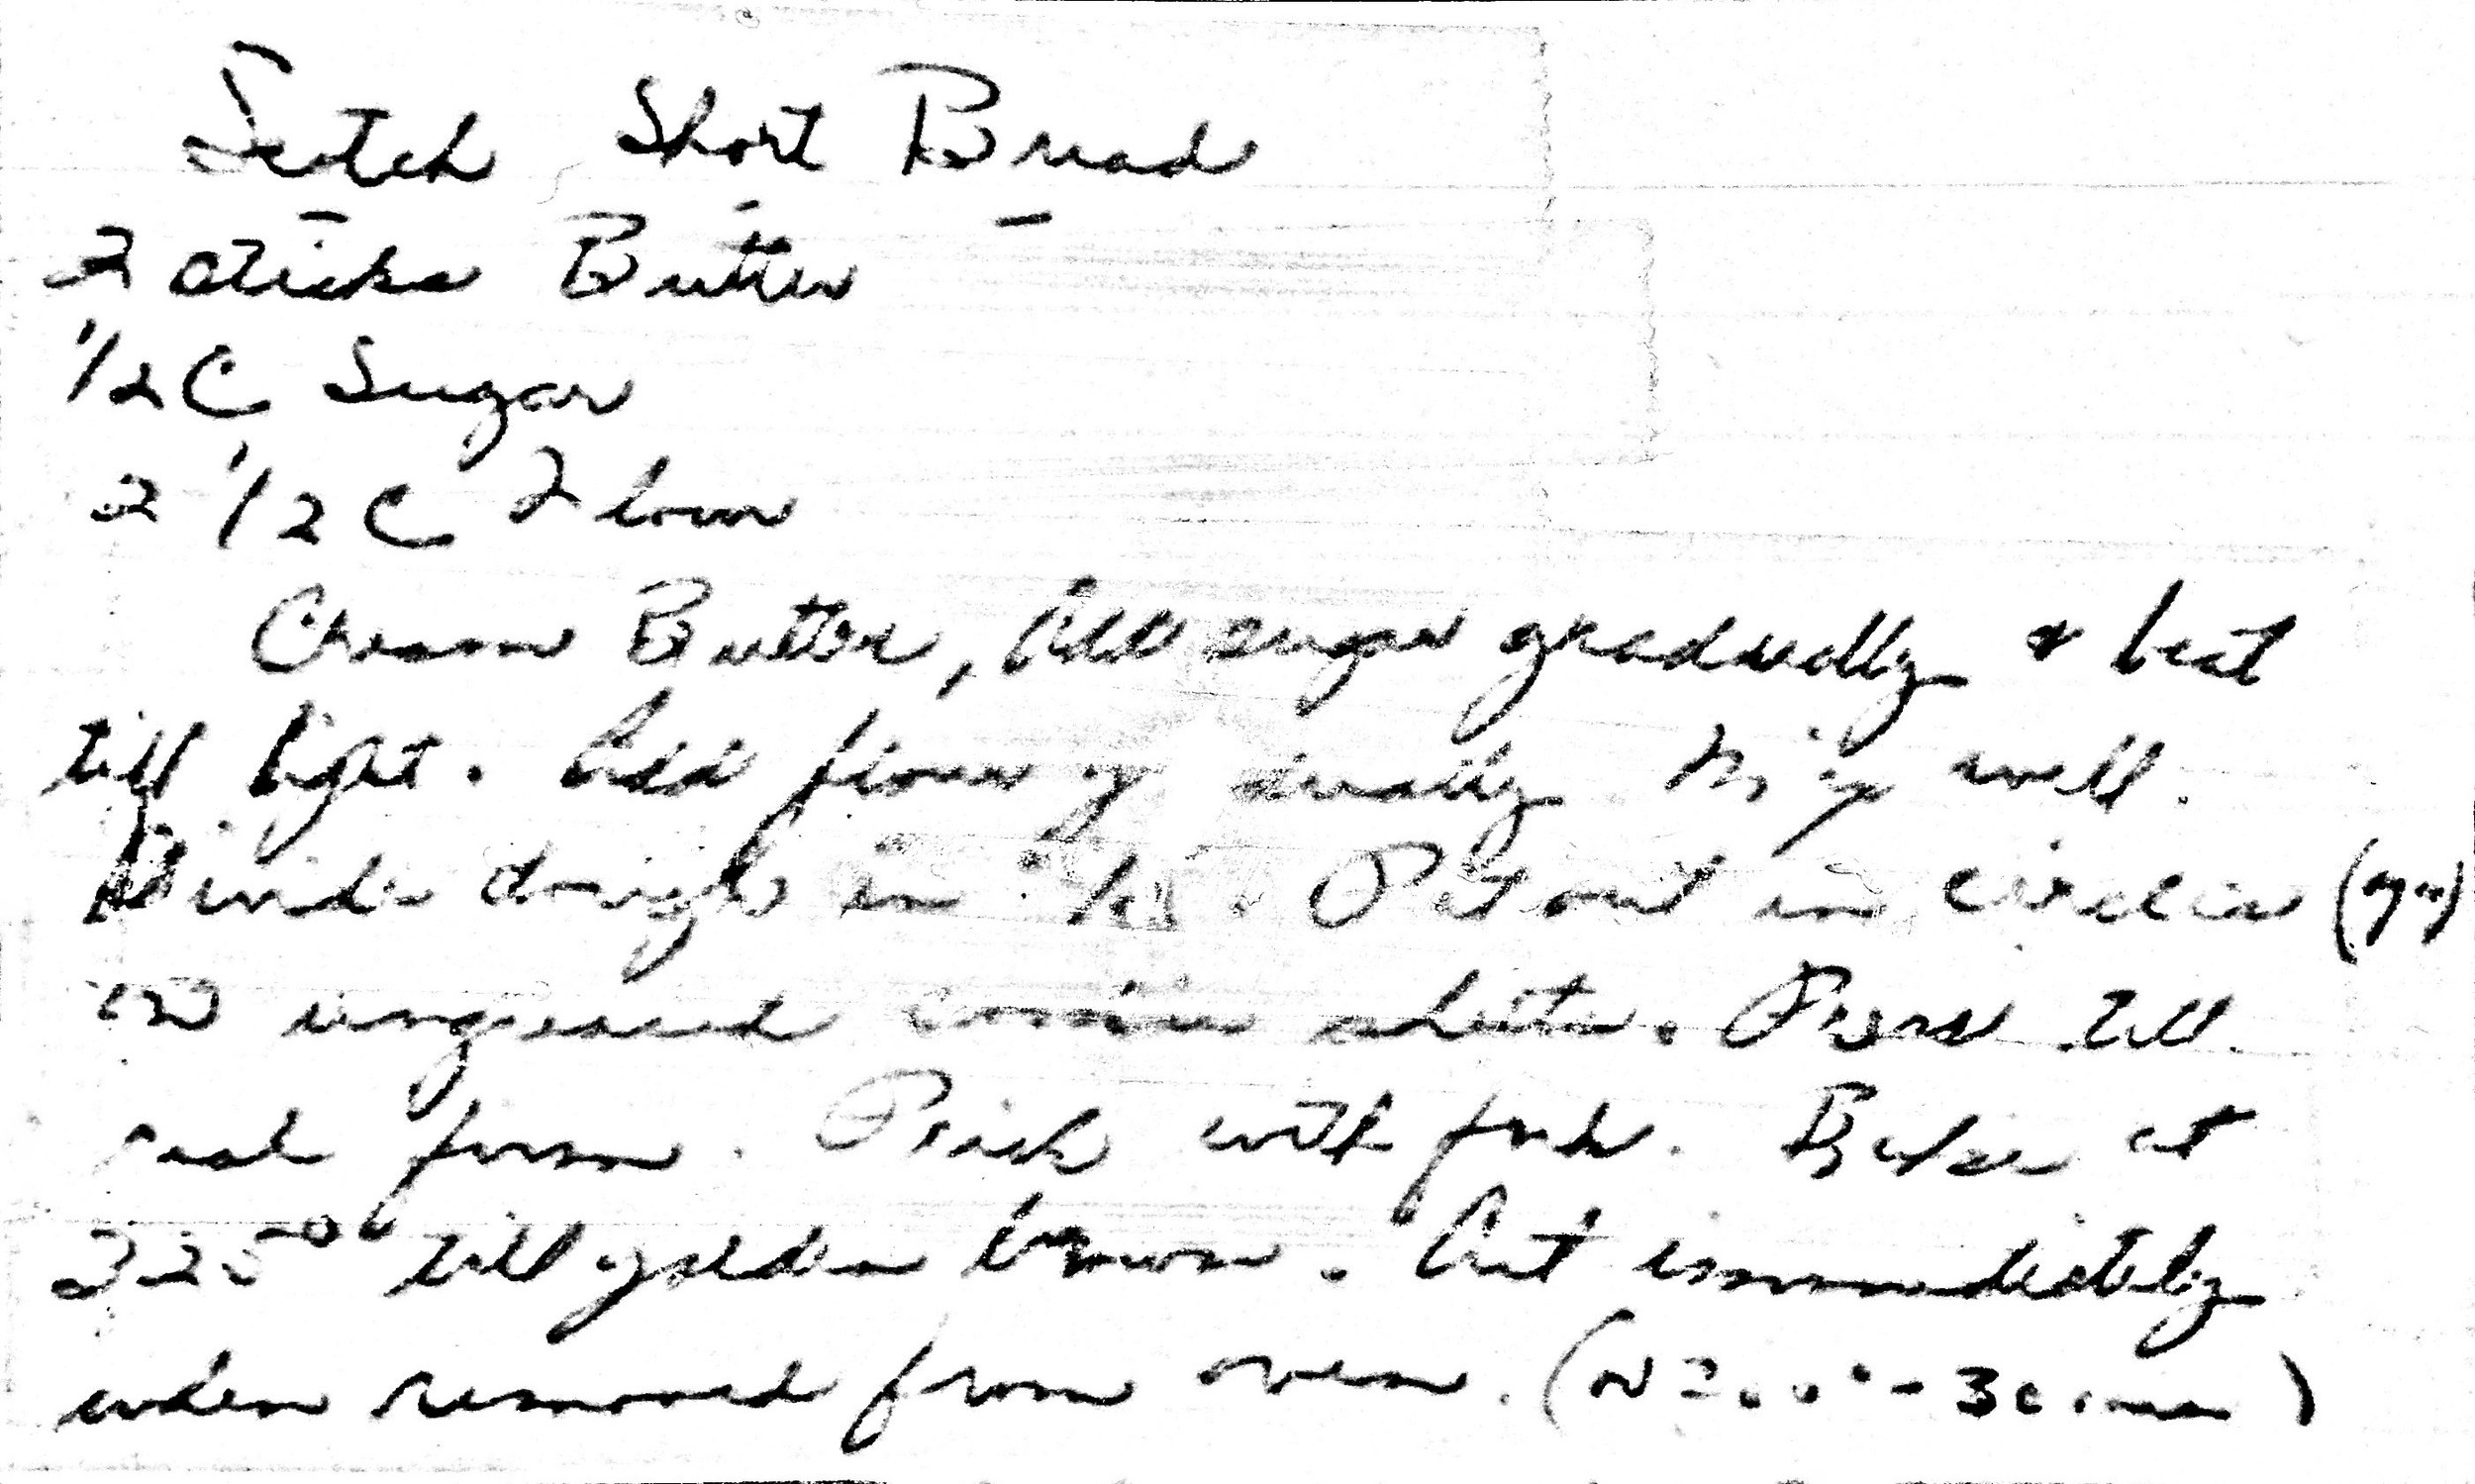 Scotch Short Bread
2 sticks Butter
1/2 C Sugar
2 1/2 C Flour
Cream Butter, Add sugar gradually & beat
till light. Add flour gradually Mix well.
Divide dough in Pat out in circles
on ungreased cookie sheets. Press till
each firm. Prick with fork. Bake at
325° till golden brown. Cut immediately
when removed from oven. (or 300° - 30 min)